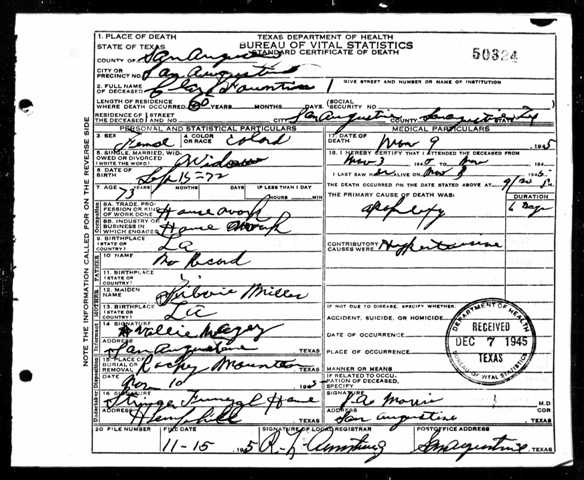 TEXAS DEPARTMENT OF HEALTH
BUREAU OF VITAL STATISTICS
STANDARD CERTIFICATE OF DEATH
50324
1. PLACE OF DEATH
STATE OF TEXAS
COUNTY OF San Augustine
CITY OR
PRECINCT NO. San Augustine
GIVE STREET AND NUMBER OR NAME OF INSTITUTION
2. FULL NAME
OF DECEASED
LENGTH OF RESIDENCE
WHERE DEATH OCCURRED YEARS MONTHS DAYS
(SOCIAL
(SECURITY NO.
RESIDENCE OF (STREET
THE DECEASED (AND NO. San Augustine COUNTY San Augustine STATE
PERSONAL AND STATISTICAL PARTICULARS
3. SEX Femal
4. COLOR
OR RACE Colord
5. SINGLE, MARRIED, WID-
OWED OR DIVORCED
(WRITE THE WORD) Widow
6. DATE OF
BIRTH Sep 15-72
7. AGE 73 YEARS MONTHS DAYS
IF LESS THAN 1 DAY
HOURS MIN
8A. TRADE, PRO-
FESSION OR KIND
OF WORK DONE House work
8B. INDUSTRY OR
BUSINESS IN
WHICH ENGAGED House work
9. BIRTHPLACE
(STATE OR
COUNTRY) La
10. NAME No Record
11. BIRTHPLACE
(STATE OR
COUNTRY)
12. MAIDEN
NAME Miller
13. BIRTHPLACE
(STATE OR
COUNTRY)
14. SIGNATURE
ADDRESS San Augustine TEXAS
15. PLACE OF
BURIAL OR
REMOVAL TEXAS
DATE Nov 10
16. SIGNATURE Funeral Home
ADDRESS Hemphill TEXAS
MEDICAL PARTICULARS
17. DATE OF
DEATH Nov 9 1945
18. I HEREBY CERTIFY THAT I ATTENDED THE DECEASED FROM
Nov 3
I LAST SAW ALIVE ON Nov
THE DEATH OCCURRED ON THE DATE STATED ABOVE AT
THE PRIMARY CAUSE OF DEATH WAS:
DURATION
Apoplexy 6 Days
CONTRIBUTORY
CAUSES WERE:
IF NOT DUE TO DISEASE, SPECIFY WHETHER:
ACCIDENT, SUICIDE, OR HOMICIDE
DATE OF OCCURRENCE
PLACE OF OCCURRENCE
MANNER OR MEANS
IF RELATED TO OCCU-
PATION OF DECEASED,
SPECIFY
SIGNATURE M.D
ADDRESS San Augustine COR
TEXAS
DEPARTMENT OF HEALTH
RECEIVED
DEC 7 1945
TEXAS
BUREAU OF VITAL STATISTICS
20 FILE NUMBER
FILE DATE
11-15
SIGNATURE OF LOCAL REGISTRAR
POSTOFFICE ADDRESS
San Augustine, TEXAS
NOTE THE INFORMATION CALLED FOR ON THE REVERSE SIDE